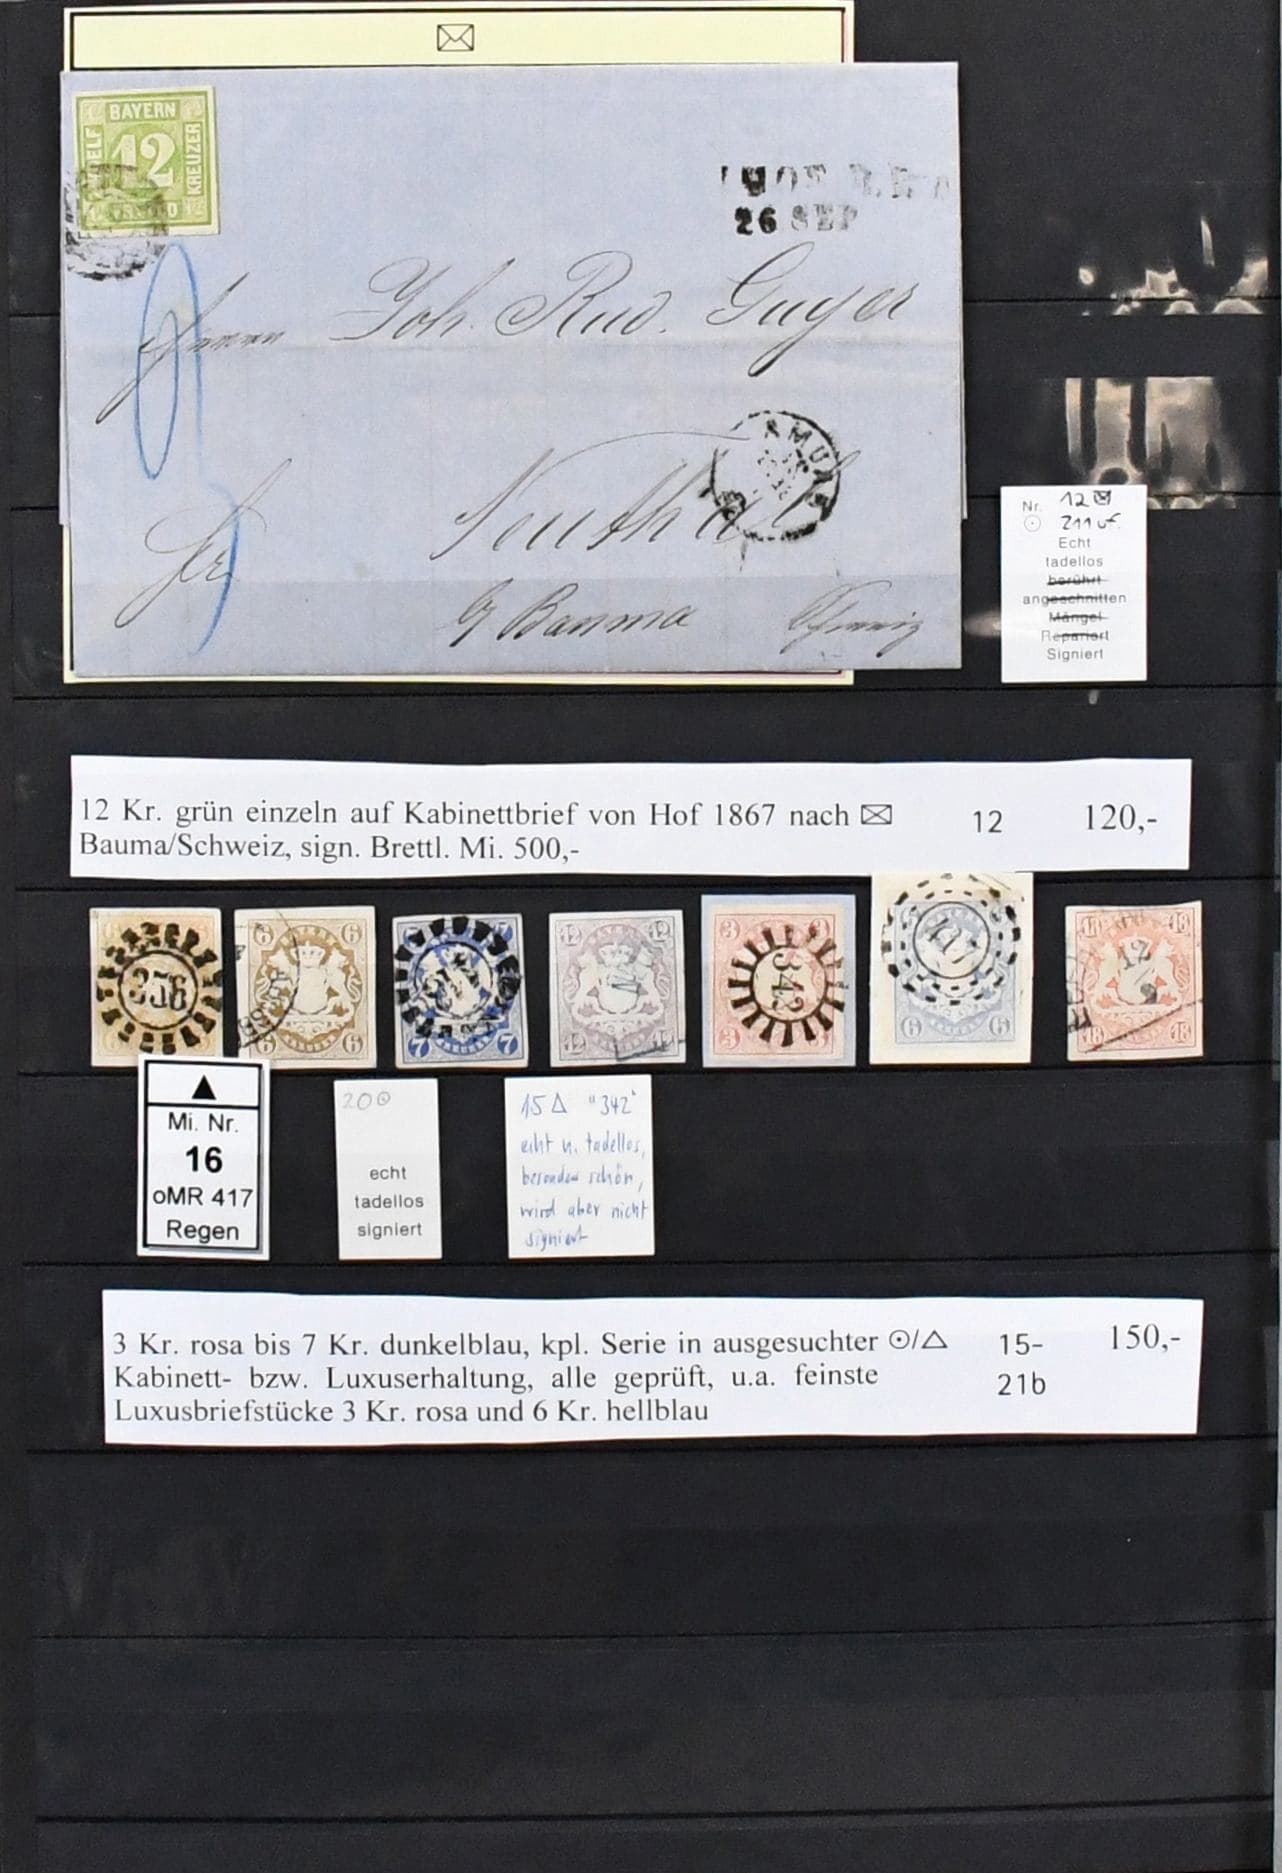 BAYERN
12
KREUZER
26 SEP
Herrn Joh. Rud. Guyer
Neuthal
Bauma
Nr. 12
Echt
tadellos
berührt
angeschnitten
Mängel
Repariert
Signiert
12 Kr. grün einzeln auf Kabinettbrief von Hof 1867 nach ✉ 12 120,-
Bauma/Schweiz, sign. Brettl. Mi. 500,-
356
6 6
6 6
7 7
7 7
12 12
12 12
3 3
342
3 3
417
6 6
18 18
12
9
18 18
▲
Mi. Nr.
16
oMR 417
Regen
20⊙
echt
tadellos
signiert
15 △ "342"
echt u. tadellos,
besonders schön,
wird aber nicht
signiert
3 Kr. rosa bis 7 Kr. dunkelblau, kpl. Serie in ausgesuchter ⊙/△ 15- 150,-
Kabinett- bzw. Luxuserhaltung, alle geprüft, u.a. feinste 21b
Luxusbriefstücke 3 Kr. rosa und 6 Kr. hellblau